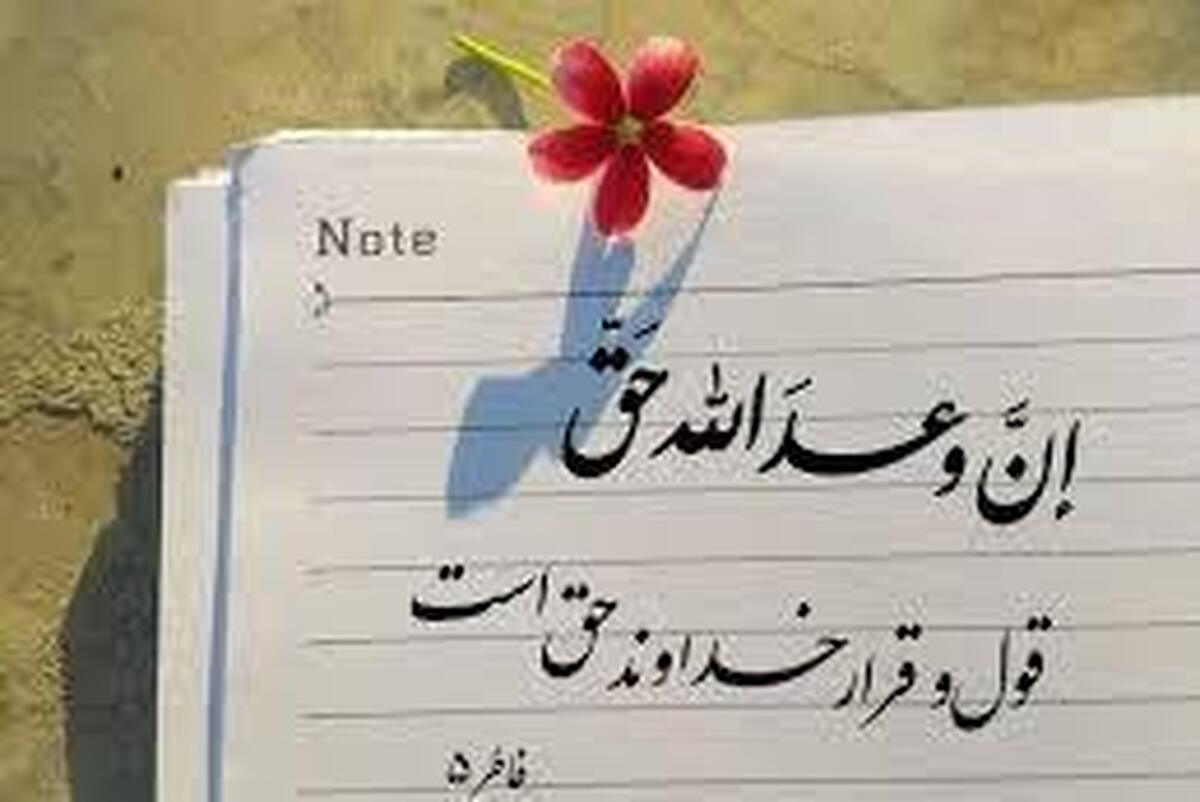 Note
إنَّ وعدَ الله حَقّ
قول و قرار خداوند حق است
فاطر ۵